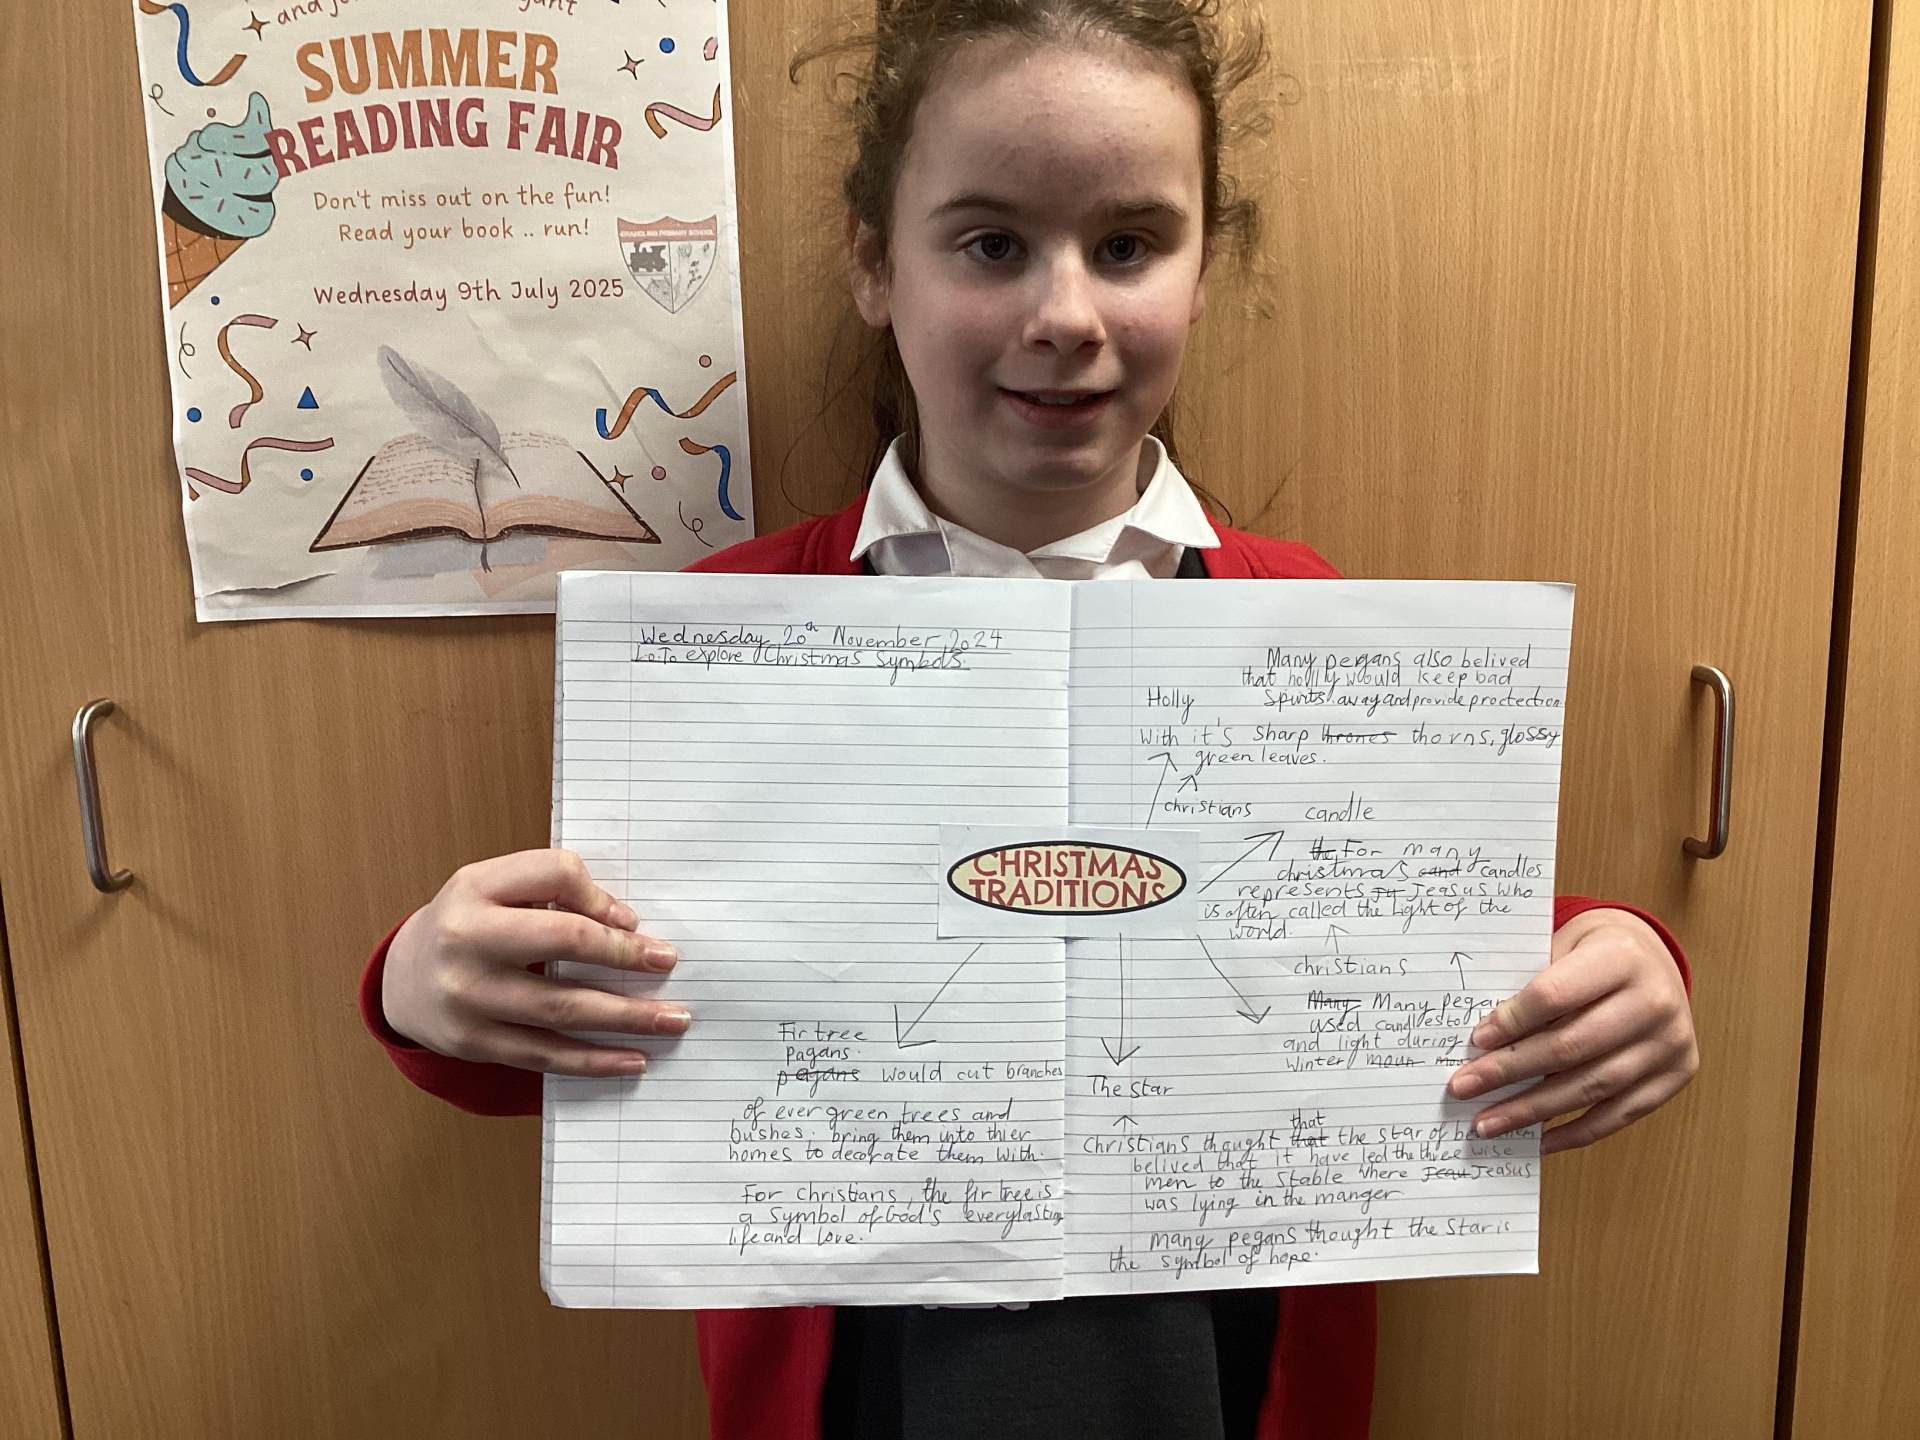 SUMMER
READING FAIR
Don't miss out on the fun!
Read your book .. run!
Wednesday 9th July 2025
PRIMARY SCHOOL
Wednesday 20th November 2024
L.O.To explore Christmas Symbols.
Fir tree
pagans.
pagans would cut branches
of ever green trees and
bushes, bring them into thier
homes to decorate them with.
For Christians, the fir tree is
a symbol of God's everylasting
life and love.
CHRISTMAS
TRADITIONS
Many pegans also belived
that holly would keep bad
Holly
Spirits away and provide proctection
With it's sharp thrones thorns, glossy
green leaves.
christians
candle
the For many
christmas and candles
represents Jeasus who
is often called the Light of the
world.
christians
Many Many pegan
used candles to
and light during
Winter
The star
that
Christians thought that the star of
belived that it have led the three wise
men to the stable where Jeasus
was lying in the manger
many pegans thought the star is
the symbol of hope.